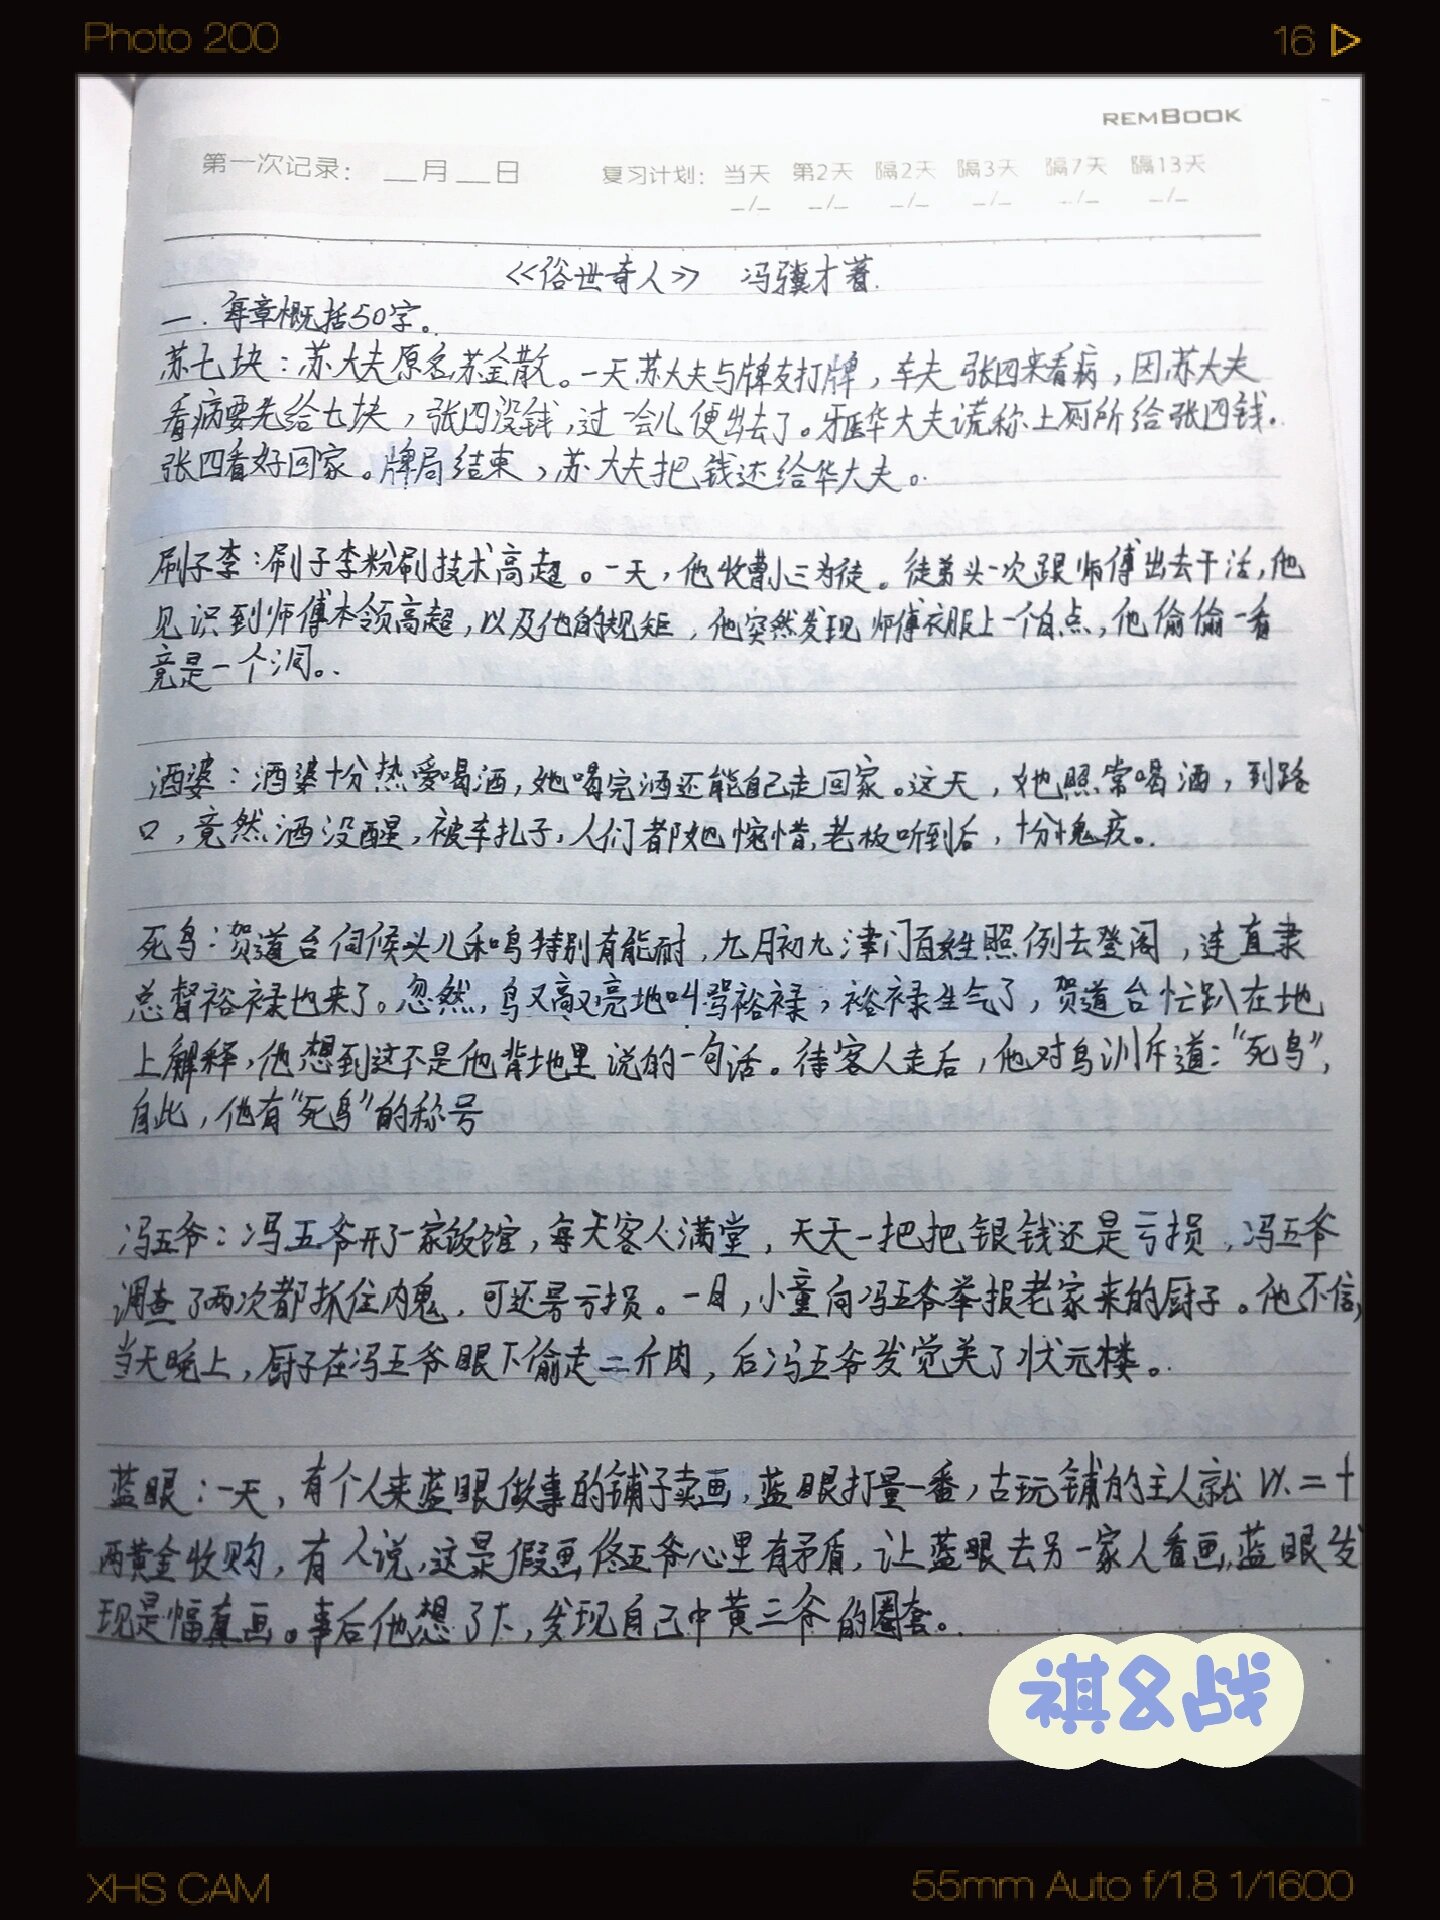 Photo 200
16
REMBOOK
第一次记录: __月__日
复习计划: 当天 第2天 隔2天 隔3天 隔7天 隔13天
_/_ _/_ _/_ _/_ _/_ _/_
《俗世奇人》 冯骥才著.
一. 每章概括50字。
苏七块:苏大夫原名苏金散。一天苏大夫与牌友打牌,车夫张四来看病,因苏大夫
看病要先给七块,张四没钱,过一会儿便出去了。牙医华大夫谎称上厕所给张四钱.
张四看好回家。牌局结束,苏大夫把钱还给华大夫。
刷子李:刷子李粉刷技术高超。一天,他收曹小三为徒。徒弟头一次跟师傅出去干活,他
见识到师傅本领高超,以及他的规矩,他突然发现师傅衣服上一个白点,他偷偷一看
竟是一个洞。
酒婆:酒婆十分热爱喝酒,她喝完酒还能自己走回家。这天,她照常喝酒,到路
口,竟然酒没醒,被车扎子,人们都她惋惜,老板听到后,十分愧疚。
死鸟:贺道台伺候头儿和鸟特别有能耐,九月初九津门百姓照例去登阁,连直隶
总督裕禄也来了。忽然,鸟又高又亮地叫骂裕禄,裕禄生气了,贺道台忙趴在地
上解释,他想到这不是他背地里说的一句话。待客人走后,他对鸟训斥道:“死鸟”,
自此,他有“死鸟”的称号
冯五爷:冯五爷开了一家饭馆,每天客人满堂,天天一把把银钱还是亏损,冯五爷
调查了两次都抓住内鬼,可还是亏损。一日,小童向冯五爷举报老家来的厨子。他不信,
当天晚上,厨子在冯五爷眼下偷走二斤肉,后冯五爷发觉关了状元楼。
蓝眼:一天,有个人来蓝眼做事的铺子卖画,蓝眼打量一番,古玩铺的主人就以二十
两黄金收购,有人说,这是假画,佟五爷心里有矛盾,让蓝眼去另一家人看画,蓝眼发
现是幅真画。事后他想了下,发现自己中黄三爷的圈套。
祺&战
XHS CAM
55mm Auto f/1.8 1/1600